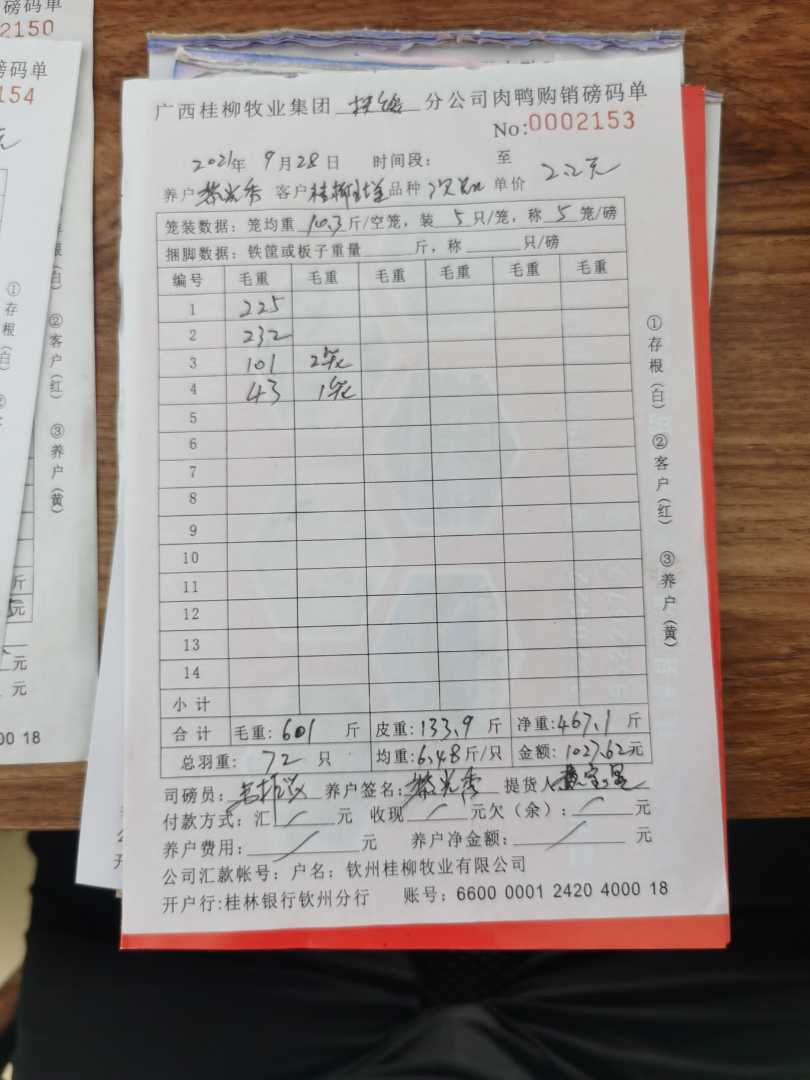 磅码单
2150
磅码单
154
元
广西桂柳牧业集团 分公司肉鸭购销磅码单
No:0002153
2021年 9月28日 时间段： 至
养户 光秀 客户 桂柳 品种 单价 2.2元
笼装数据：笼均重 10.3 斤/空笼，装 5 只/笼，称 5 笼/磅
捆脚数据：铁筐或板子重量 斤，称 只/磅
编号 毛重 毛重 毛重 毛重 毛重 毛重
1 225
2 232
3 101 2笼
4 43 1笼
5
6
7
8
9
10
11
12
13
14
小计
合计 毛重：601 斤 皮重：133.9 斤 净重：467.1 斤
总羽重： 72 只 均重：6.48斤/只 金额：1027.62元
司磅员： 养户签名： 光秀 提货人
付款方式：汇 / 元 收现 / 元欠（余）： / 元
养户费用： / 元 养户净金额： / 元
公司汇款帐号：户名：钦州桂柳牧业有限公司
开户行:桂林银行钦州分行 账号：6600 0001 2420 4000 18
①存根（白） ②客户（红） ③养户（黄）
①存根（白）
②客户（红） ③养户（黄）
斤
元
元
元
00 18